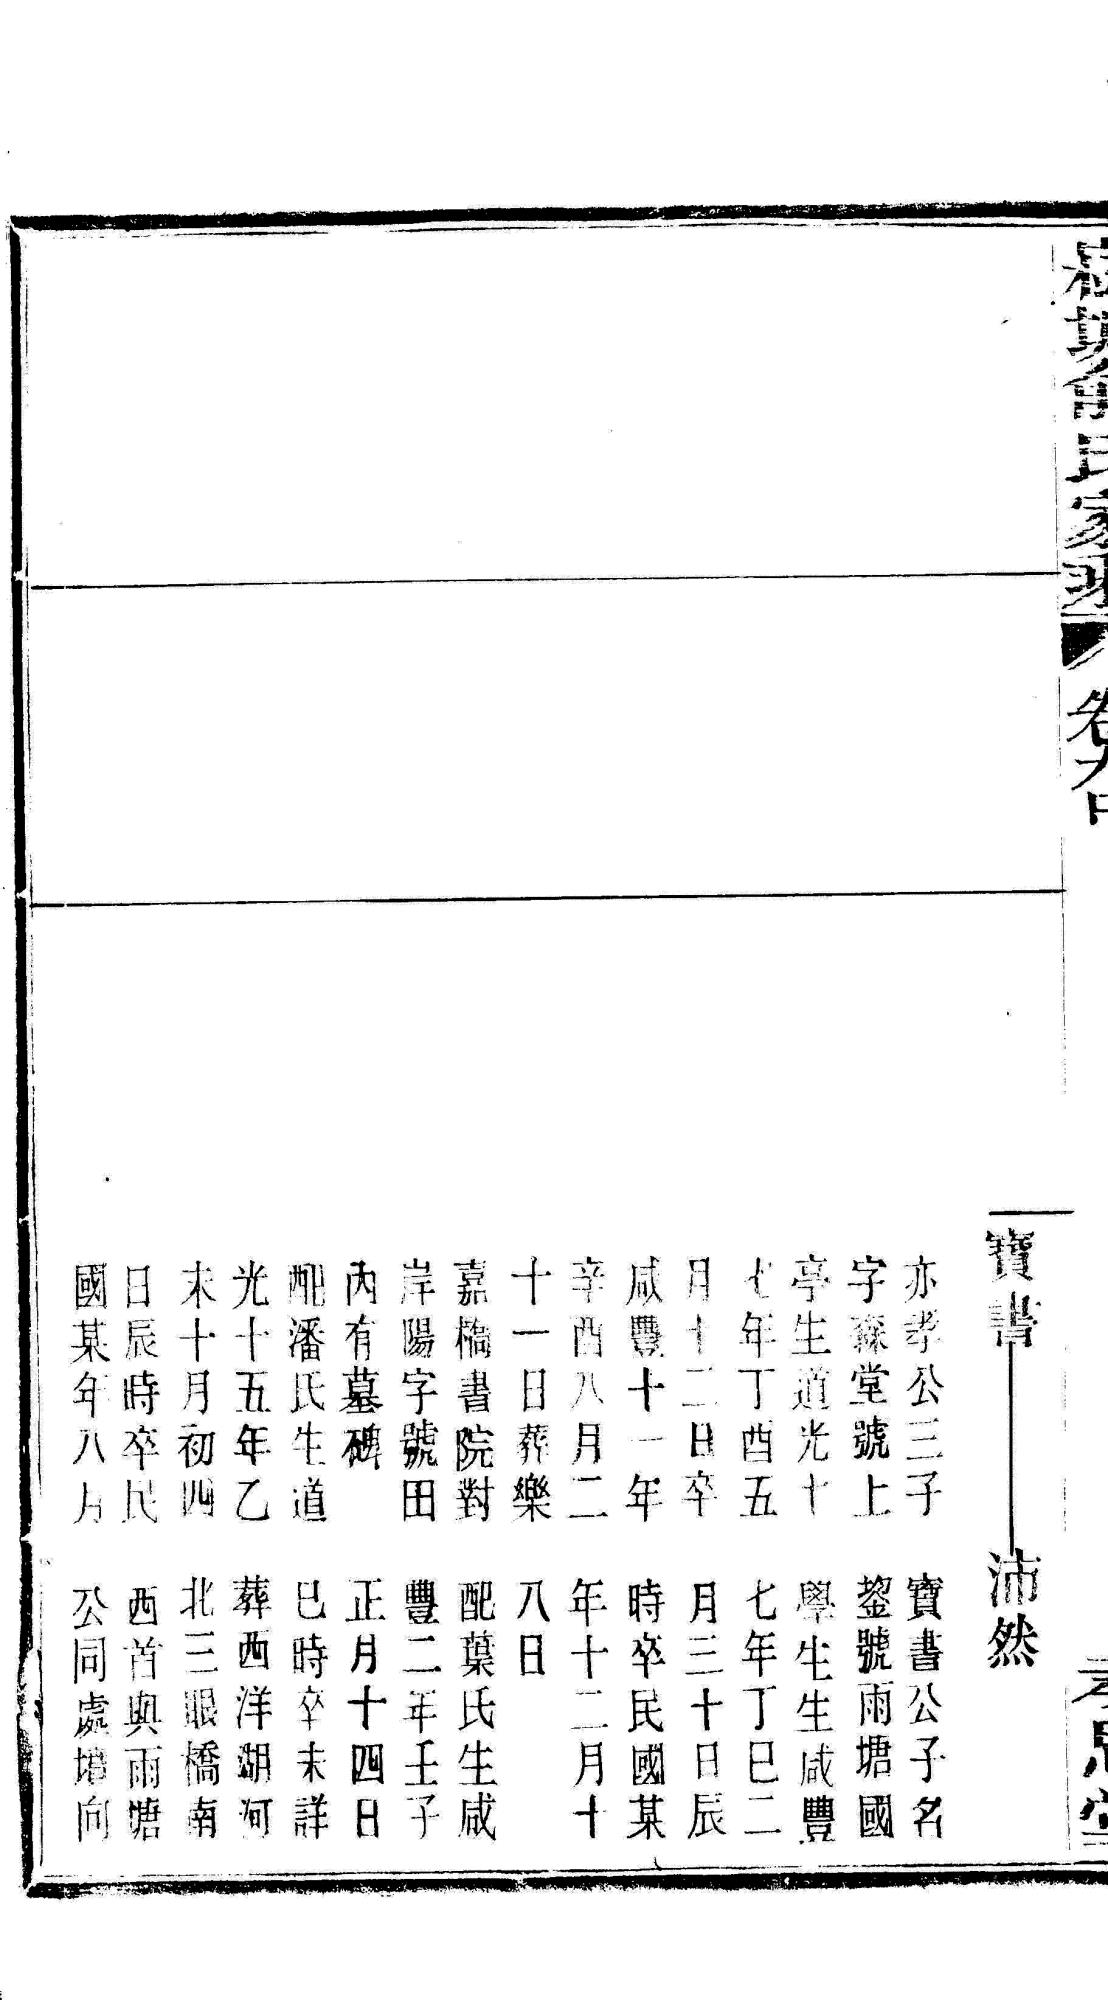 氏家
卷九中
寶書
沛然
亦孝公三子
字霖堂號上
亭生道光十
七年丁酉五
月十二日卒
咸豐十一年
辛酉八月二
十一日葬樂
嘉橋書院對
岸陽字號田
內有墓碑
配潘氏生道
光十五年乙
未十月初四
日辰時卒民
國某年八月
寶書公子名
鋆號雨塘國
學生生咸豐
七年丁巳二
月三十日辰
時卒民國某
年十二月十
八日
配葉氏生咸
豐二年壬子
正月十四日
巳時卒未詳
葬西洋湖河
北三眼橋南
西首與雨塘
公同處墳向
孝思堂